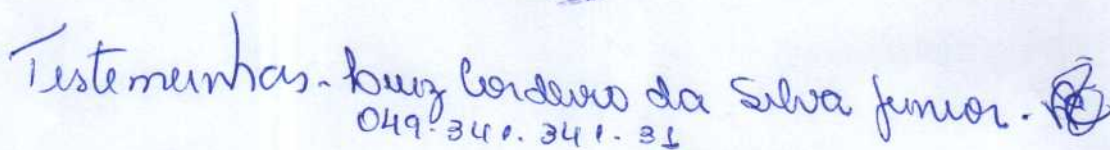 Testemunhas - Luiz Cordeiro da Silva Junior.
049.341.341.31